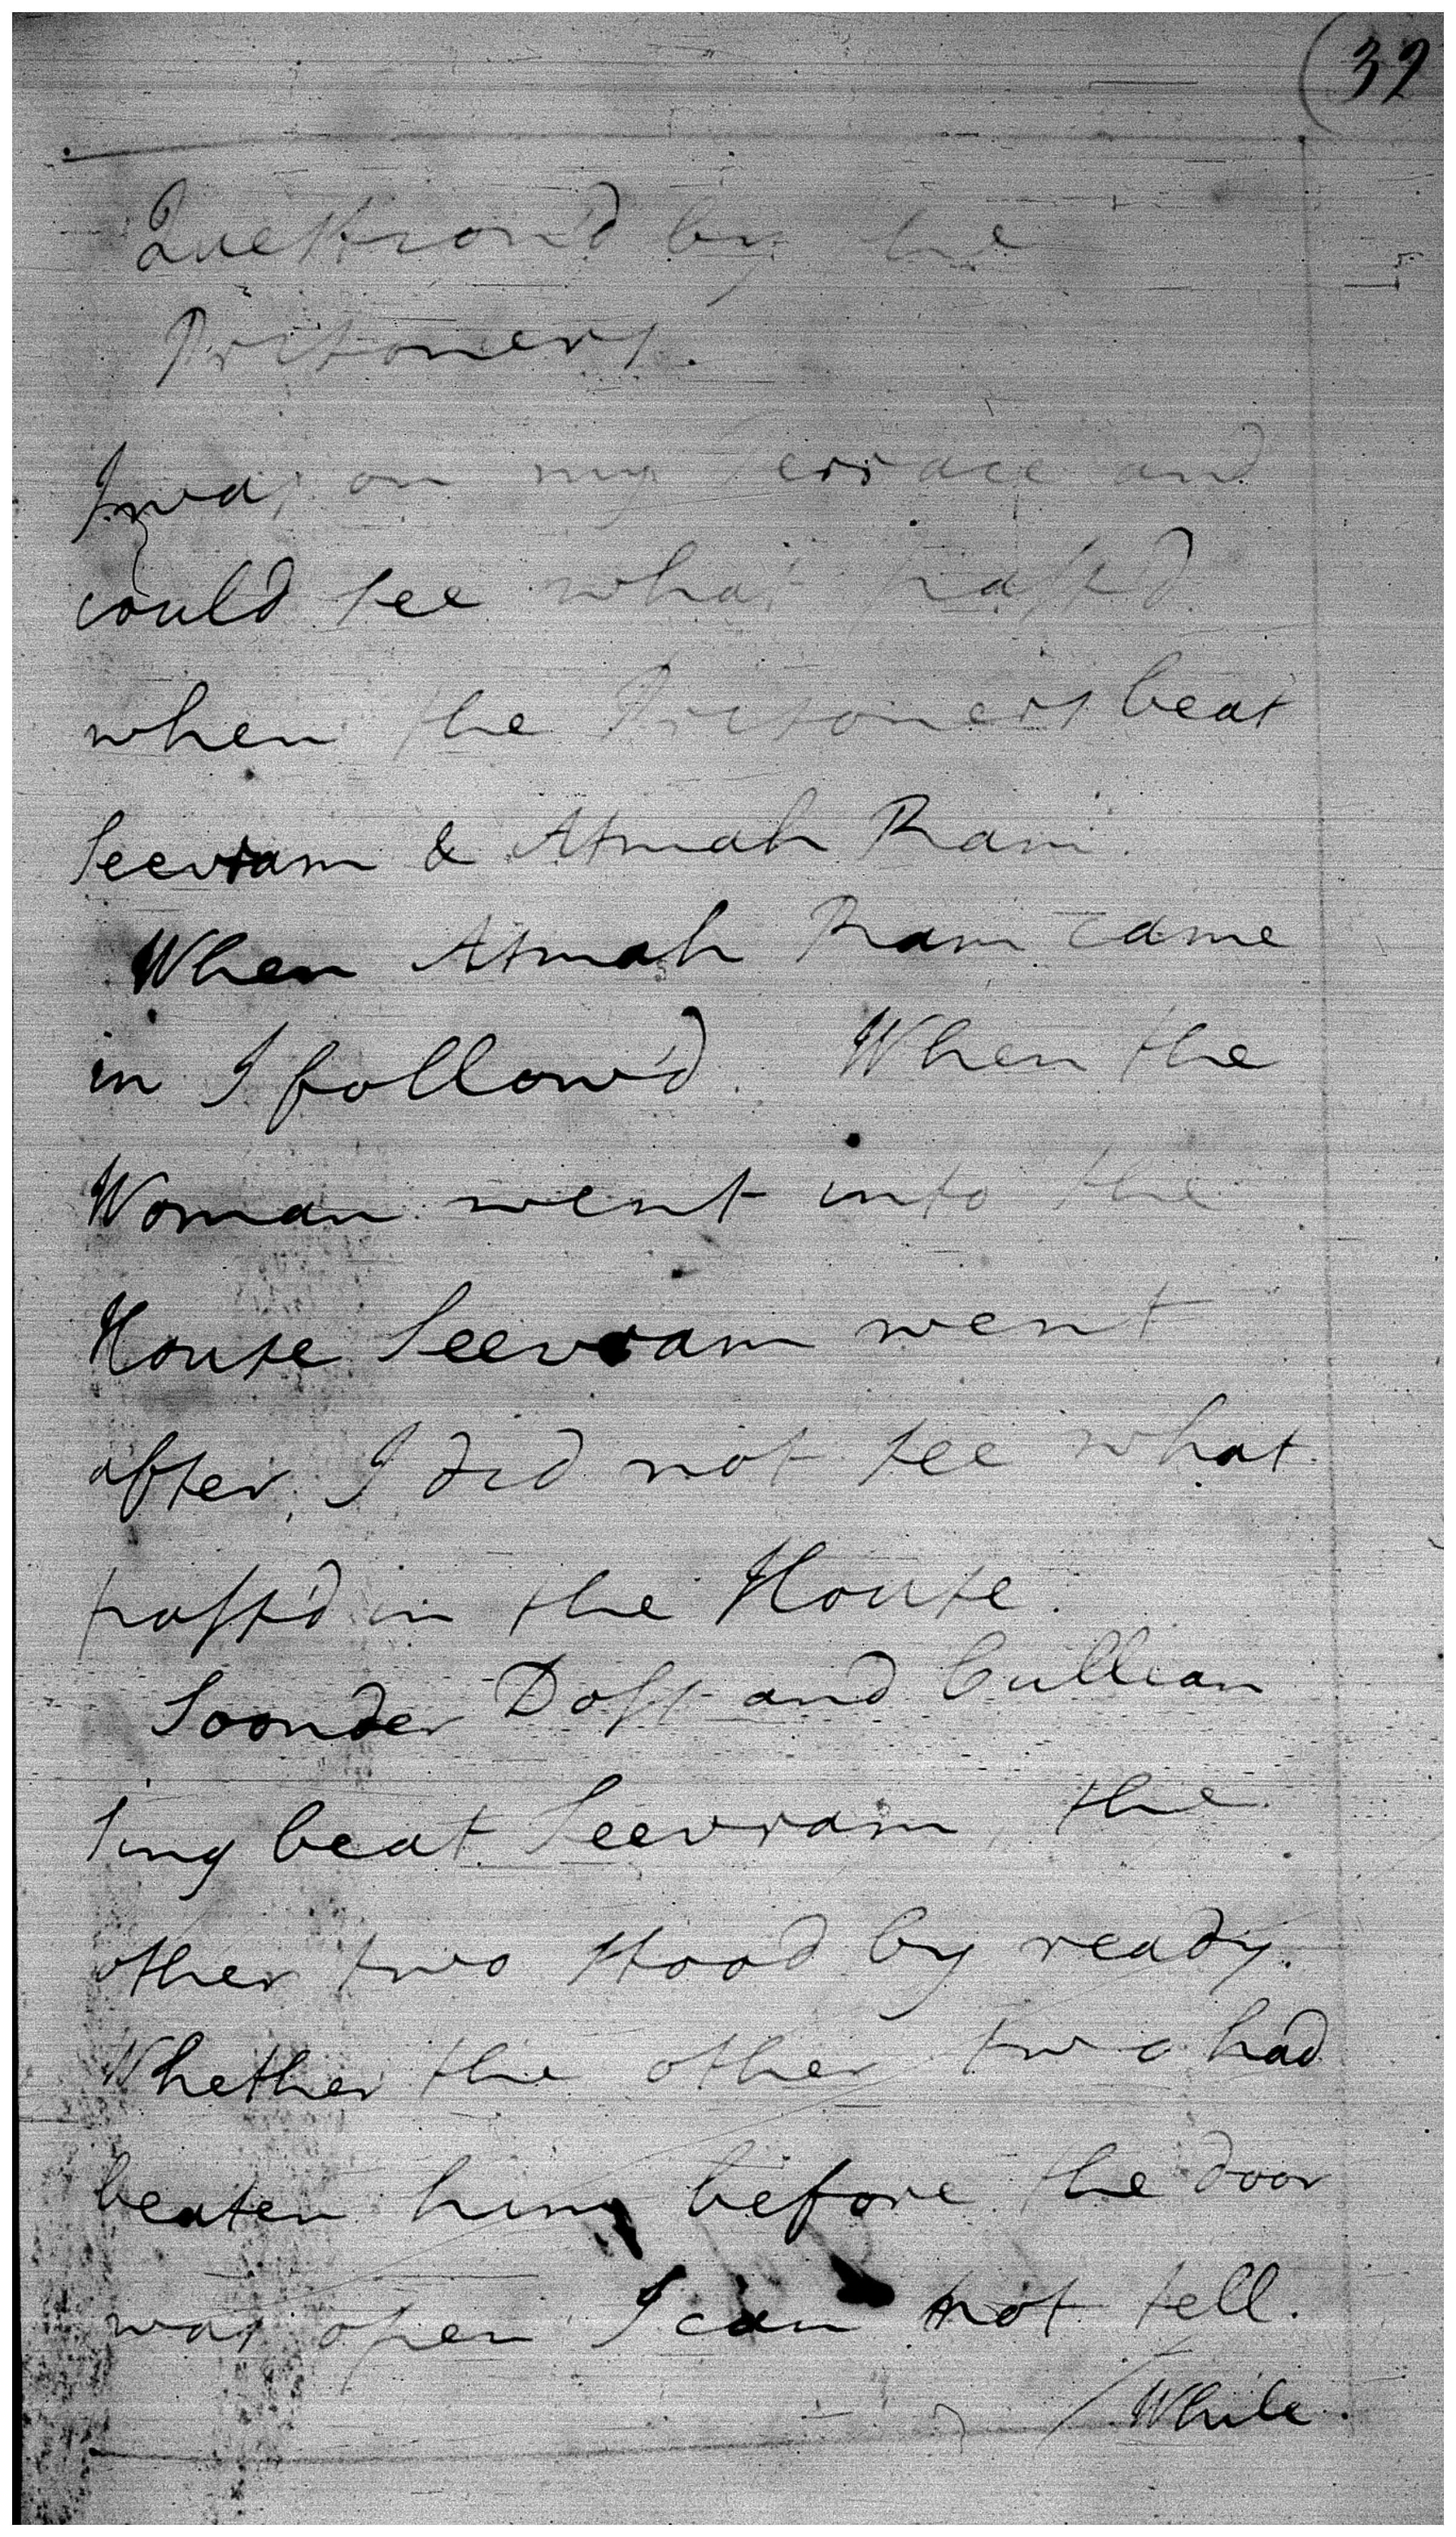 (32
Question'd by the
Prisoners.
I was on my terrace and
could see what pass'd
when the Prisoners beat
Seevram & Atmah Ram.
When Atmah Ram came
in I follow'd. When the
Woman went into the
House Seevram went
after, I did not see what
pass'd in the House.
Soonder Doss and Cullian
Sing beat Seevram, the
other two stood by ready.
Whether the other two had
beaten him before the door
was open I can not tell.
While.